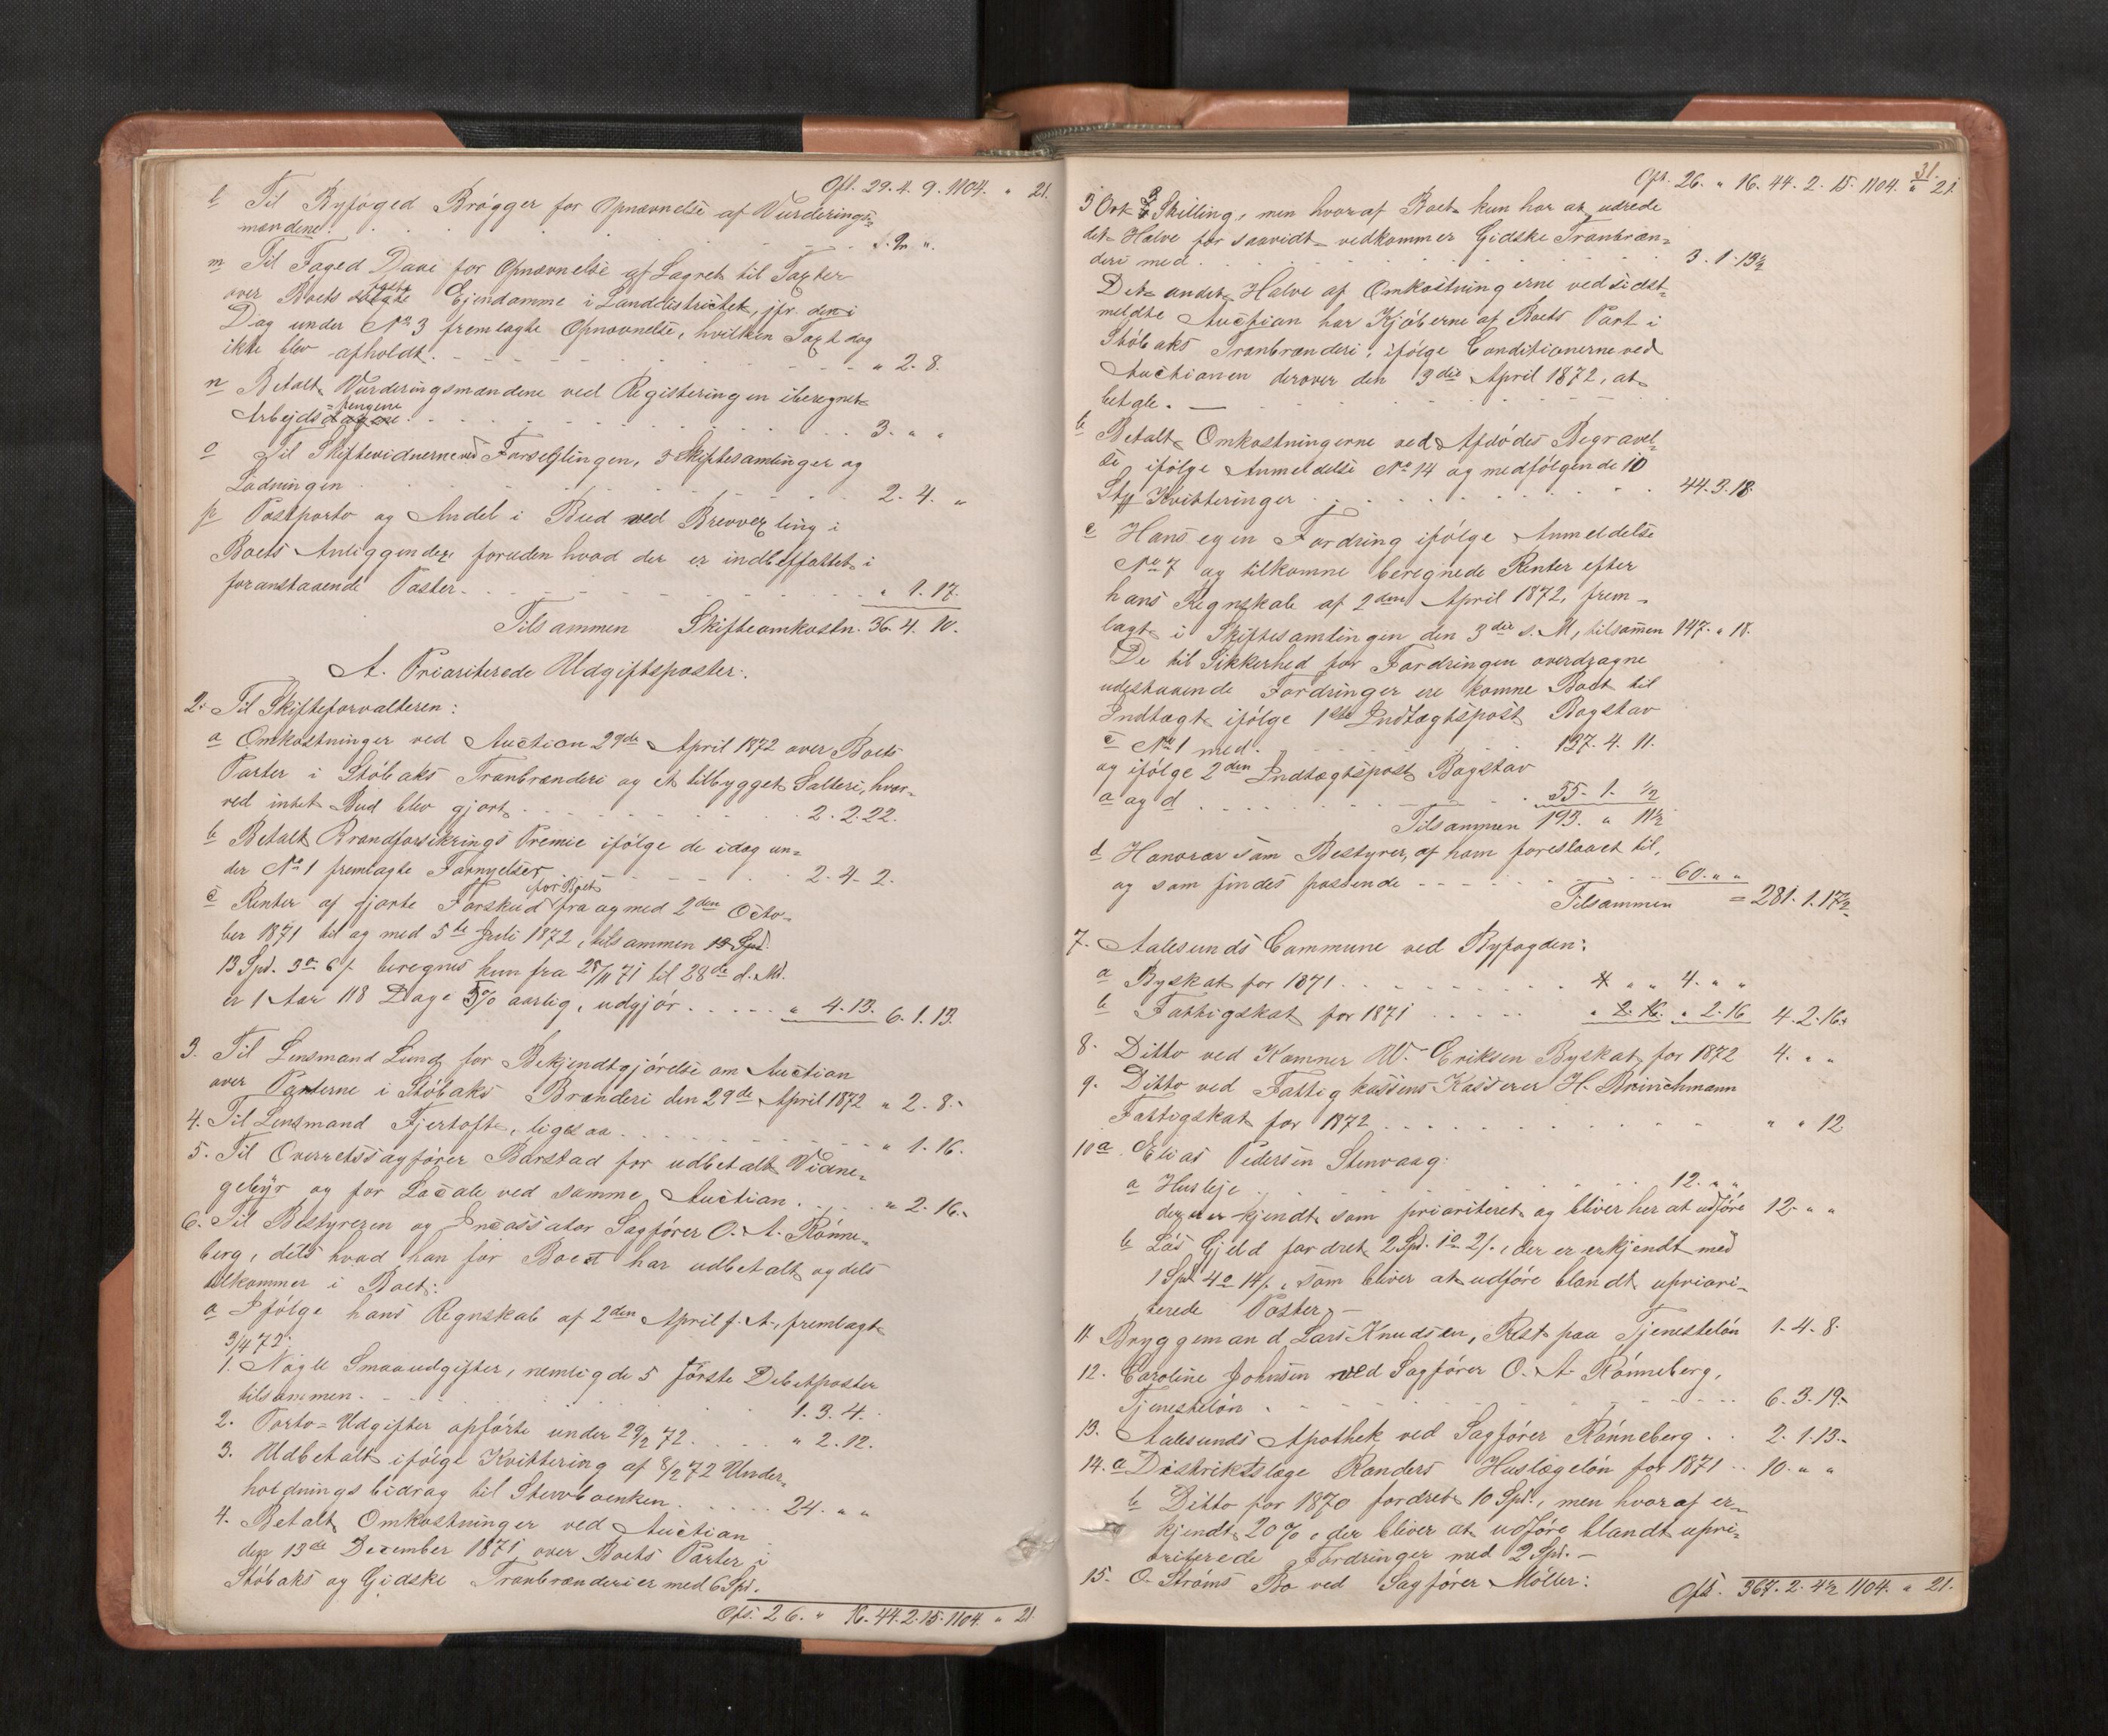 Oft. 29. 4. 9. 1104. " 21.
l Til Byfoged Brøgger for Opnævnelse af Vurderings-
mændene.
m Til Foged Daae for Opnævnelse af Lagret til Taxter
over Boets faste Ejendomme i Landdistriktet, jfr. den i
Dag under No 3 fremlagte Opnævnelse, hvilken Taxt dog
ikke blev afholdt. " 2. 8.
n Betalt Vurderingsmændene ved Registeringen iberegnet
Arbejdspengene. 3. " "
o Til Skiftevidnerne ved Forseglingen, 3 Skiftesamlinger og
Ladningen 2. 4. "
p Postporto og Andel i Bud ved Brevvexling i
Boets Anliggender foruden hvad der er indbefattet i
foranstaaende Poster. " 1. 17.
Tilsammen Skifteomkostn. 36. 4. 10.
A. Prioriterede Udgiftsposter.
2. Til Skifteforvalteren:
a Omkostninger ved Auction 29de April 1872 over Boets
Parter i Støbaks Tranbrænderi og et tilbygget Salteri, hvor-
ved intet Bud blev gjort 2. 2. 22.
b Betalt Brandforsikrings Premie ifølge de idag un-
der No 1 fremlagte Fornyelser 2. 4. 2.
c Renter af gjorte Forskud for Boet fra og med 2den Octo-
ber 1871 til og med 5te Juli 1872, tilsammen 13 Spd.
13 Spd. 3 o 6 s. beregnes kun fra 28/11 71 til 28de d. Md.
er 1 Aar 118 Dage 5% aarlig, udgjør " 4. 13. 6. 1. 13.
3. Til Lensmand Lund for Bekjendtgjørelse om Auction
over Parterne i Støbaks Brænderi den 29de April 1872 " 2. 8.
4. Til Lensmand Fjertoft, ligesaa " 1. 16.
5. Til Overretssagfører Barstad for udbetalt Vidne-
gebyr og for Locale ved samme Auction. " 2. 16.
6. Til Bestyreren og Incassator Sagfører O. A. Rønne-
berg, dels hvad han for Boet har udbetalt og dels
tilkommer i Boet:
a Ifølge hans Regnskab af 2den April f. A., fremlagt
3/4 72:
1. Nogle Smaaudgifter, nemlig de 5 første Debetposter
tilsammen. 1. 3. 4.
2. Porto-Udgifter opførte under 29/2 72. " 2. 12.
3. Udbetalt ifølge Kvittering af 8/2 72 Under-
holdningsbidrag til Stervboenken. 24. " "
4. Betalt Omkostninger ved Auction
den 13de December 1871 over Boets Parter i
Støbaks og Gidske Tranbrænderier med 6 Spd.
Ofs. 26. " 16. 44. 2. 15. 1104. " 21.
31.
Ofs. 26. " 16. 44. 2. 15. 1104. " 21.
3 Ort 3 Skilling, men hvoraf Boet kun har at udrede
det Halve for saavidt vedkommer Gidske Tranbræn-
deri med. 3. 1. 13½
Det andet Halve af Omkostningerne ved sidst-
meldte Auction har Kjøberne af Boets Part i
Støbaks Tranbrænderi, ifølge Conditionerne ved
Auctionen derover den 13de April 1872, at
betale. —
b Betalt Omkostningerne ved Afdødes Begravel-
se ifølge Anmeldelse No 14 og medfølgende 10
Stk Kvitteringer. 44. 3. 18.
c Hans egen Fordring ifølge Anmeldelse
No 7 og tilkomne beregnede Renter efter
hans Regnskab af 2den April 1872, frem-
lagt i Skiftesamlingen den 3die s. M, tilsammen 147. " 18.
De til Sikkerhed for Fordringen overdragne
udestaaende Fordringer ere komne Boet til
Indtægt ifølge 1ste Indtægtspost Bogstav
c No 1 med. 137. 4. 11.
og ifølge 2den Indtægtspost Bogstav
a og d 55. 1. ½
Tilsammen 193. " 11½
d Honorar som Bestyrer, af ham foreslaaet til,
og som findes passende 60. " "
Tilsammen = 281. 1. 17½.
7. Aalesunds Commune ved Byfogden:
a Byskat for 1871 4 " " 4. " "
b Fattigskat for 1871 " 2. 16. " 2. 16 4. 2. 16.
8. Ditto ved Kæmner W. Eriksen Byskat for 1872 4. " "
9. Ditto ved Fattigkassens Kasserer H. Brinchmann
Fattigskat for 1872 " " 12
10a. Elias Pedersen Stenvaag:
a Husleje 12. " "
der er erkjendt som prioriteret og bliver her at udføre 12. " "
b Løs Gjeld fordret 2 Spd. 1 o 2 s., der er erkjendt med
1 Spd 4 o 14 s., som bliver at udføre blandt upriori-
terede Poster. —
11. Bryggemand Lars Knudsen, Rest paa Tjenesteløn 1. 4. 8.
12. Caroline Johnsen ved Sagfører O. A. Rønneberg,
Tjenesteløn 6. 3. 19.
13. Aalesunds Apothek ved Sagfører Rønneberg 2. 1. 13.
14. a Distriktslæge Randers Huslægeløn for 1871 10. " "
b Ditto for 1870 fordret 10 Spd., men hvoraf er-
kjendt 20%, der bliver at udføre blandt upri-
oriterede Fordringer med 2 Spd. —
15. O. Strøms Bo ved Sagfører Møller:
Ofs. 367. 2. 4½ 1104. " 21.